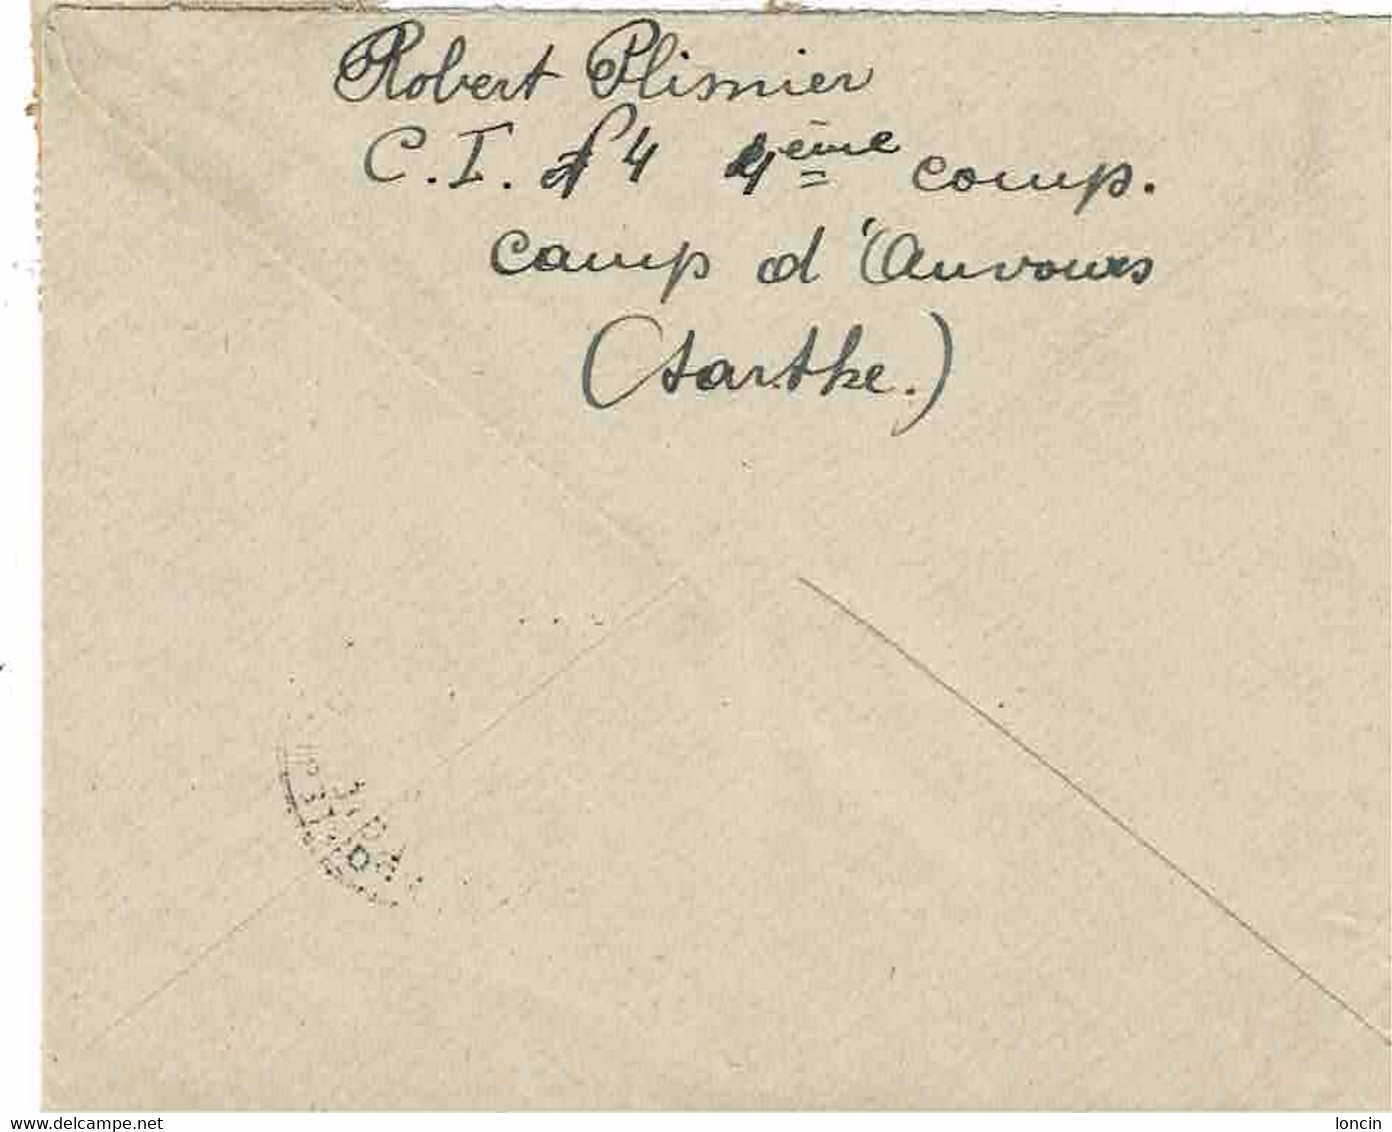 Robert Plismier
C.I. 4 4ème comp.
Camp d'Auvours
(Sarthe.)
delcampe.net
loncin